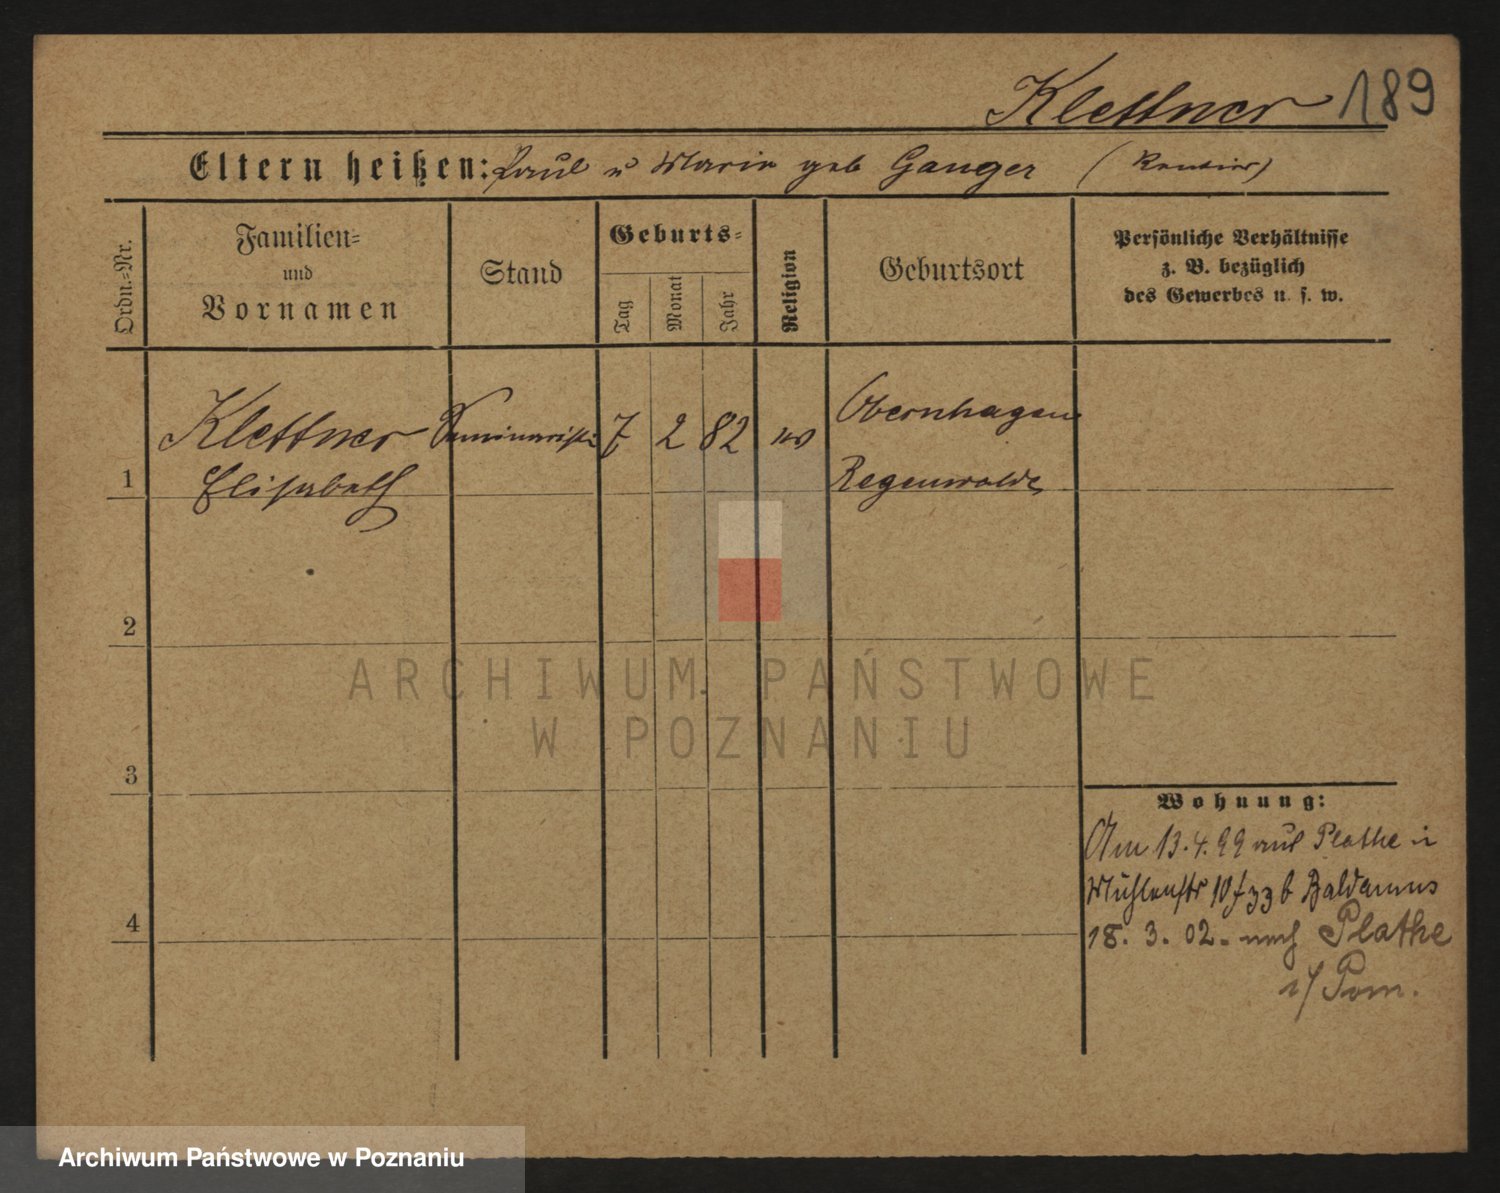 Klettner 189
Eltern heißen: Paul u Marie geb Ganger (Rentier)
Ordn.=Nr.
Familien=
und
Vornamen
Stand
Geburts=
Tag
Monat
Jahr
Religion
Geburtsort
Persönliche Verhältnisse
z. B. bezüglich
des Gewerbes u. s. w.
Klettner Seminaristin 7 2 82 Obernhagen
1 Elisabeth Regenwalde
2
ARCHIWUM PAŃSTWOWE
W POZNANIU
3
Wohnung:
Am 13.4.99 aus Plathe
Mühlenstr 10 b Baldamus
4
18. 3. 02. nach Plathe
i/ Pom.
Archiwum Państwowe w Poznaniu